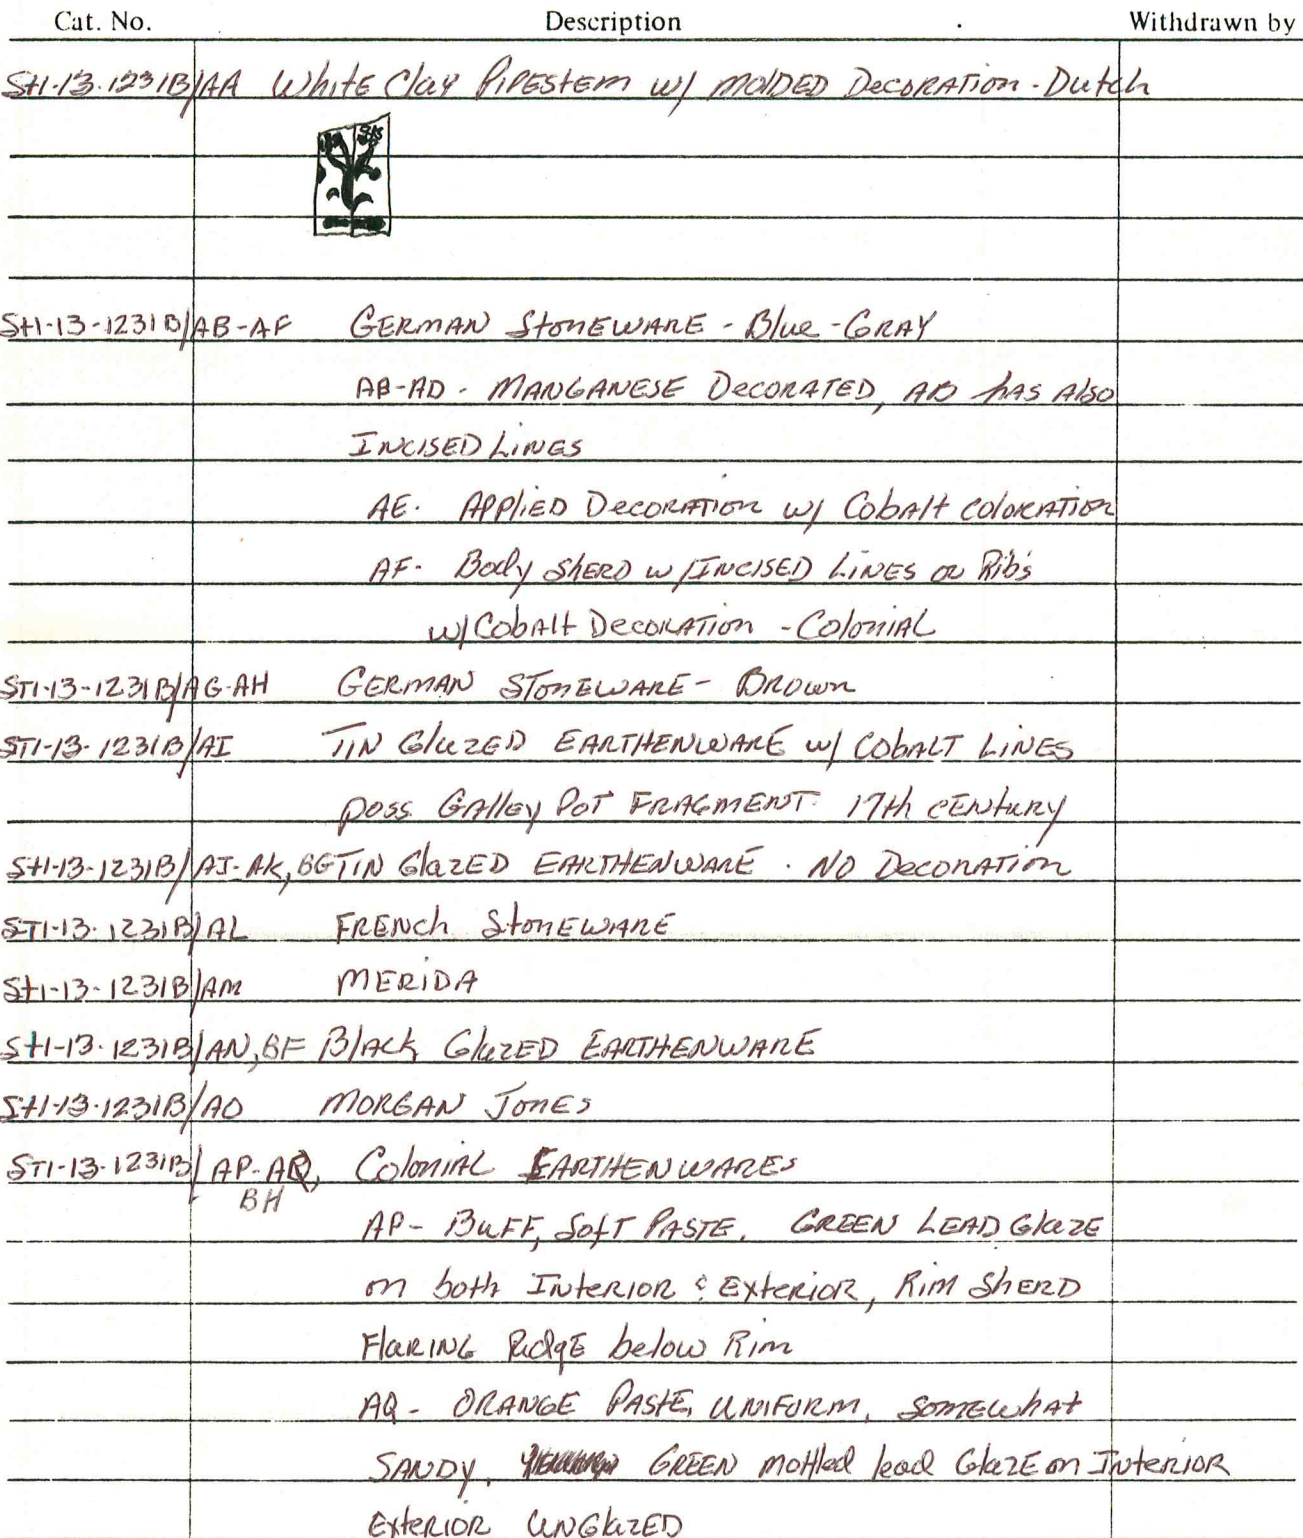 Cat. No. Description Withdrawn by
St1-13-1231B/AA White Clay Pipestem w/ Molded Decoration - Dutch
St1-13-1231B/AB-AF German Stoneware - Blue-Gray
AB-AD - Manganese Decorated, AB has Also
Incised Lines
AE. Applied Decoration w/ Cobalt coloration
AF- Body Sherd w/Incised Lines or Ribs
w/Cobalt Decoration - Colonial
ST1-13-1231B/AG-AH German Stoneware - Brown
ST1-13-1231B/AI Tin Glazed Earthenware w/ Cobalt Lines
poss. Galley Pot Fragment 17th century
St1-13-1231B/AJ-AK, BG Tin Glazed Earthenware. No Decoration
ST1-13-1231B/AL French Stoneware
St1-13-1231B/AM Merida
St1-13-1231B/AN, BF Black Glazed Earthenware
St1-13-1231B/AO Morgan Jones
ST1-13-1231B/AP-AQ, Colonial Earthenwares
BH
AP- Buff, Soft Paste. Green Lead Glaze
on both Interior & Exterior, Rim Sherd
Flaring Ridge below Rim
AQ- Orange Paste, Uniform, Somewhat
Sandy. Green mottled lead Glaze on Interior
Exterior Unglazed